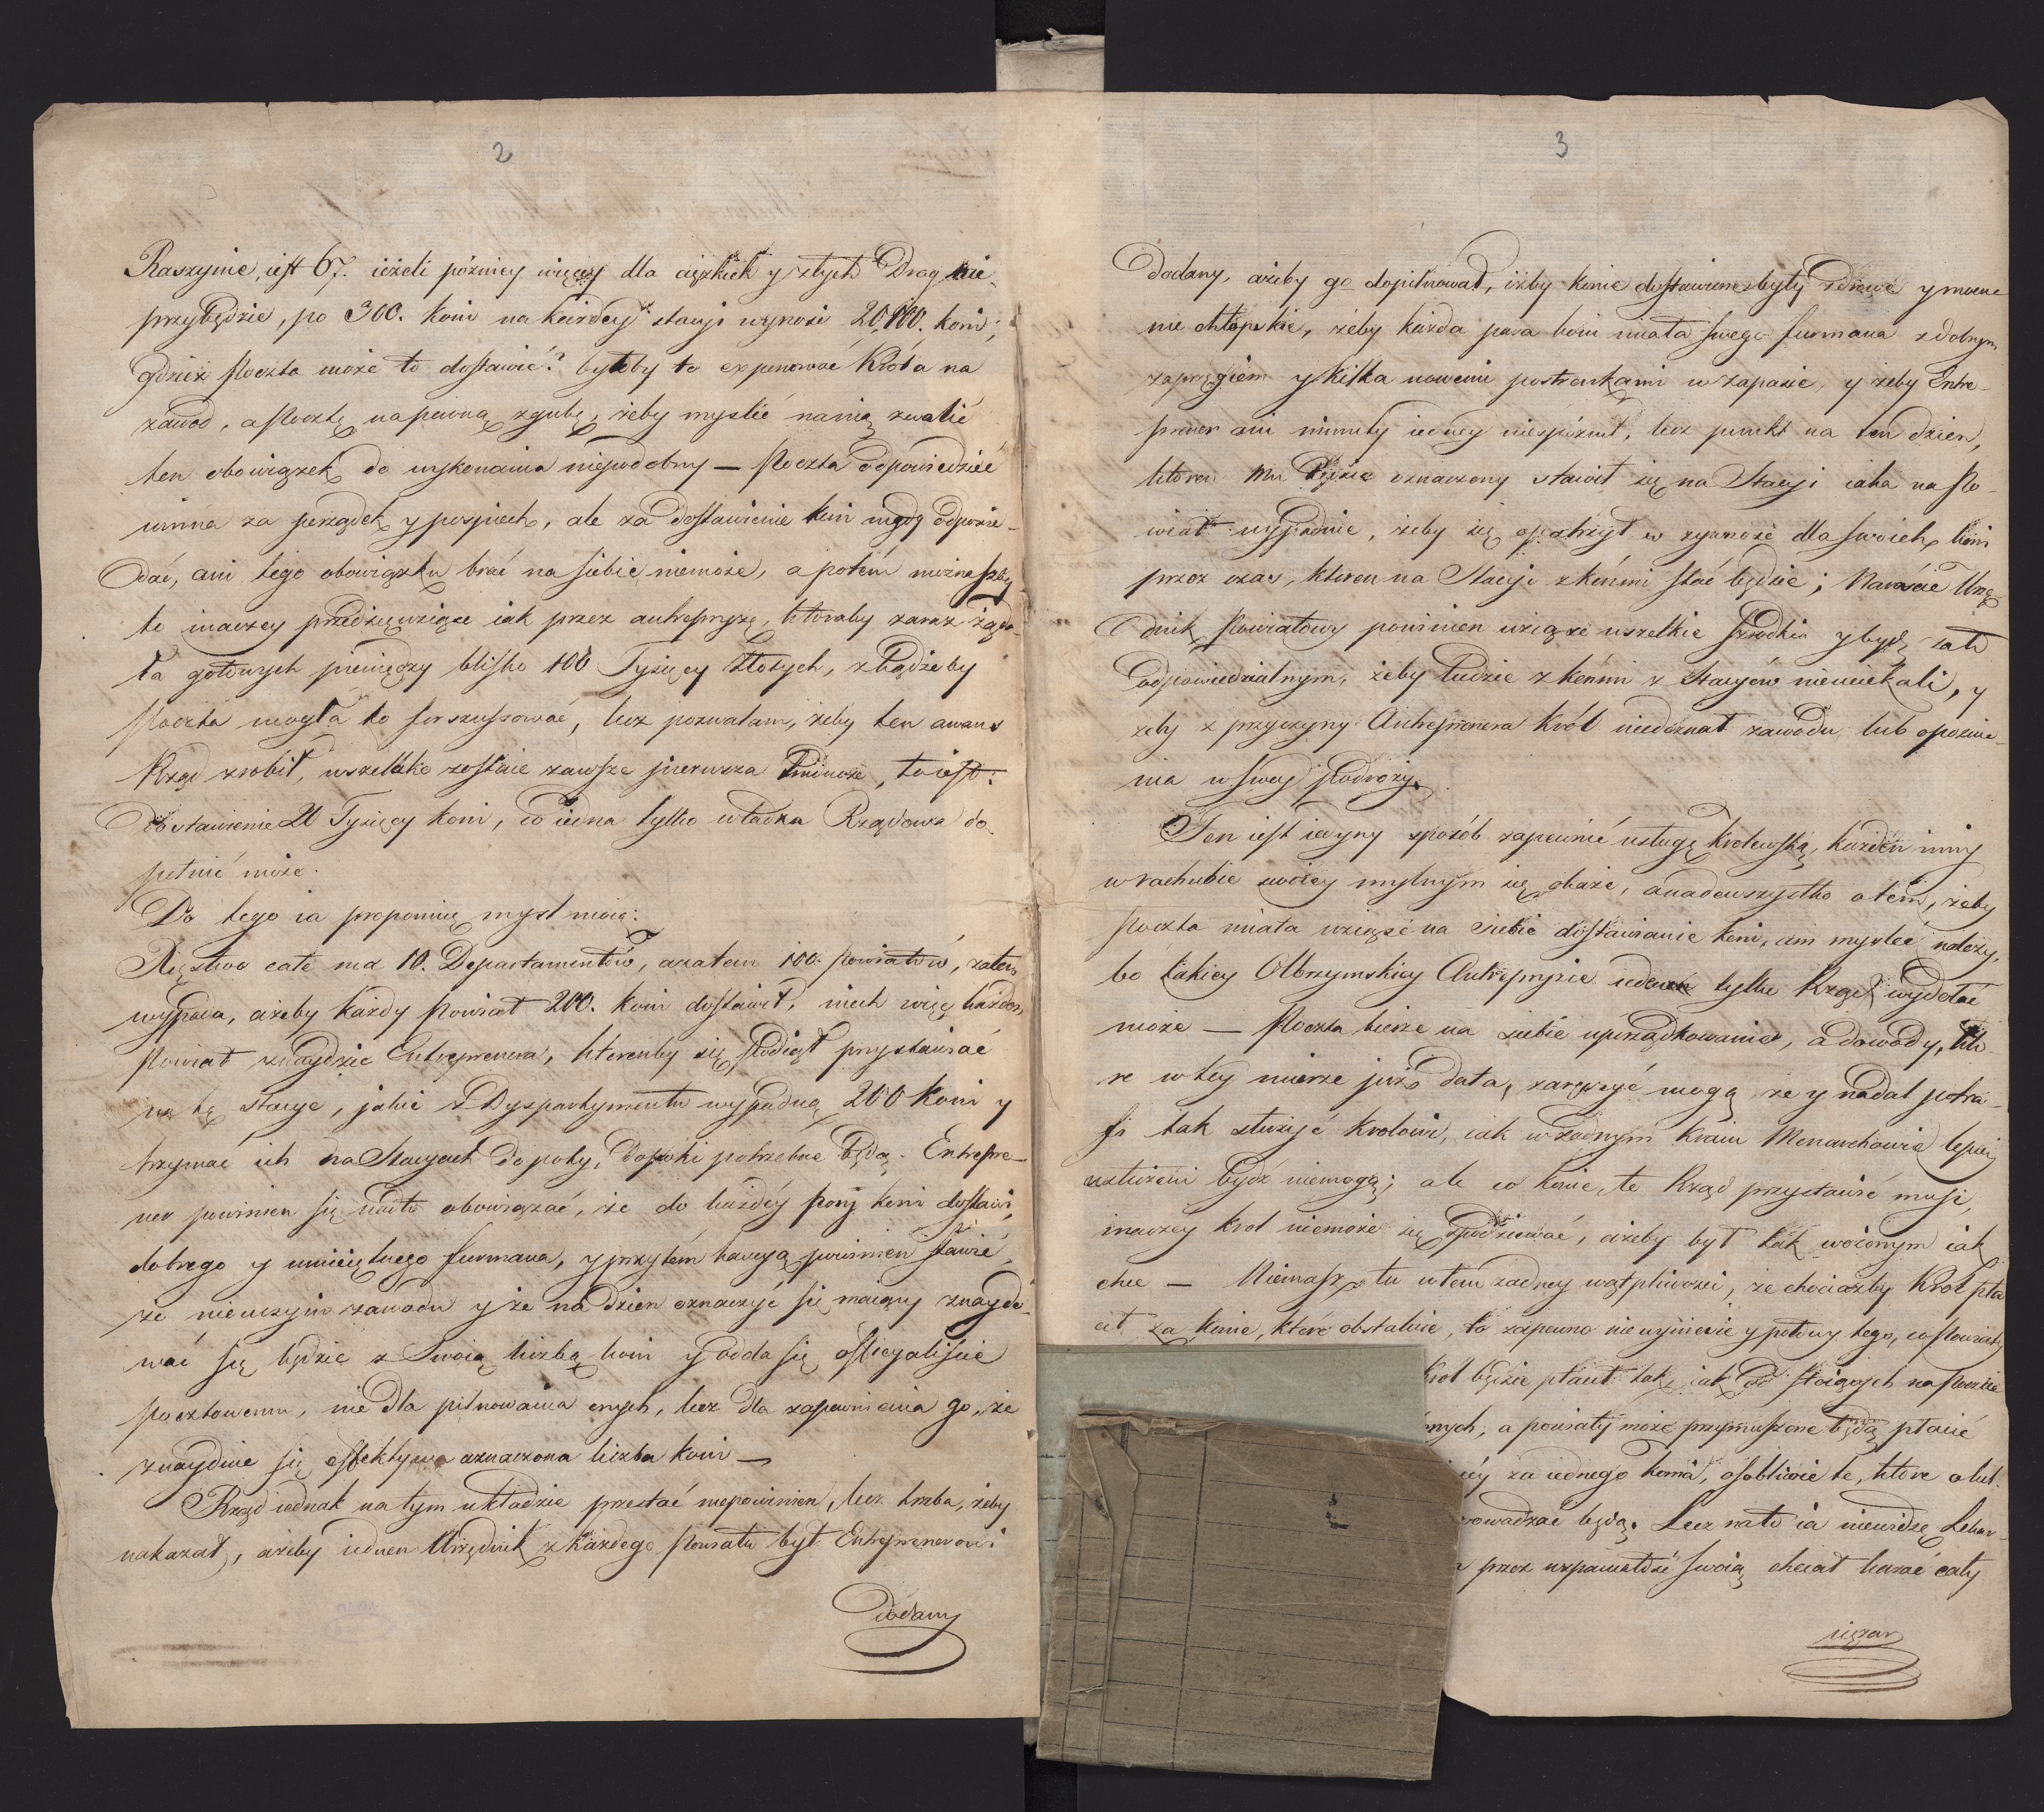 2
Raszynie, iest 67. ieżeli później więcej dla ciężkich y złych Drog nie
przybędzie, po 300. koni na każdey stacyi wynosi 20,100. koni;
gdzież Poczta może to dostawić? byłoby to exponować Króla na
zawod, a Pocztę na pewną zgubę, żeby myslić na nią zwalić
ten obowiązek do wykonania niepodobny — Poczta odpowiedzieć
winna za porządek y pospiech, ale za dostawienie koni nigdy odpowie-
dać, ani tego obowiązku brać na siebie niemoże, a potém można by
to inaczey przedsięwziąć iak przez antrepryzę, któraby zaraz żąda-
ła gotowych pieniędzy blisko 100 Tysięcy Złotych, zkądże by
Poczta mogła to forszussować, lecz pozwalam, żeby ten awans
Rząd zrobił, wszelako zostaie zawsze pierwsza, to iest:
dostawienie 20 Tysięcy koni, co iedna tylko władza Rządowa do-
pełnić może.
Do tego ia proponuię mysl moią:
Xięstwo całe ma 10. Departamentów, a zatem 100. powiatów, zatem
wypada, ażeby każdy Powiat 200. koni dostawił, niech więc każden
Powiat znaydzie Entreprenera, którenby się podiął przystawić
na tę stacye, jakie z Dyspartymentu wypadną 200 koni y
trzymać ich na Stacyach dopoty, dopoki potrzebne będą. Entrepre-
ner powinien się nadto obowiązać, że do każdéy pary koni dostawi
dobrego y umieiętnego furmana, y przytém kaucyą powinien stawić,
że nieuczyni zawodu y że na dzien oznaczyć się maiący znaydo-
wać się będzie z Swoią liczbą koni y odda się officyaliscie
pocztowemu, nie dla pilnowania onych, lecz dla zapewnienia go, że
znayduie się effektywa oznaczona liczba koni —
Rząd iednak na tym układzie przestać niepowinien, lecz trzeba, żeby
nakazał, ażeby ieden Urzędnik z każdego Powiatu był Entreprenerowi
dodany
3
dodany, ażeby go dopilnował, iżby konie dostawione były zdrowe y mocne
nie chłopskie, żeby każda para koni miała swego furmana z dobrym
zaprzęgiem y kilka nowemi postronkami w zapasie, y żeby Entre-
prener ani minuty iedney niespóźnił, lecz punkt na ten dzien,
któren Mu będzie oznaczony stawił się na Stacyi iaka na Po-
wiat wypadnie, żeby się opatrzył w zywność dla swoich koni
przez czas, któren na Stacyi z końmi stać będzie; Nareście Urzę-
dnik Powiatowy powinien wziąść wszelkie srzodki y być za to
odpowiedzialnym, żeby ludzie z końmi z Stacyów nieuciekali, y
żeby z przyczyny Antreprenera Król niedoznał zawodu, lub opoznie-
nia w swey Podróży.
Ten iest iedyny sposób zapewnić usługę krolewską, każden inny
w rachubie swoiey mylnym się okaże, a nadewszystko o tém, żeby
Poczta miała wziąść na siebie dostawianie koni, ani myslec należy,
bo takiey Olbrzymskiey Antrepryzie ieden tylko Rząd wydołać
może — Poczta bierze na siebie uporządkowanie, a dowody, któ-
re w tey mierze już dała, zaręczyć mogą że y nadal potra-
fi tak służyć krolowi, iak w żadnym kraiu Monarchowie lepiey
usłużeni bydź niemogą; ale co konie, te Rząd przystawić musi,
inaczey krol niemoże się spodziewać, ażeby był tak wożonym iak
chce — Niemasz tu w tem żadney wątpliwości, że chociażby Krol pła-
cił za konie, które obstaluie, to zapewno niewyniesie y połowy tego, co Powiaty
krol będzie płacił tak, iak od stoiących na Poczcie
onych, a powiaty może przymuszone będą płacić
za iednego konia, osobliwie te, które
będą. Lecz na to ia niewidzę
przez wspaniałość swoią chciał kazać cały